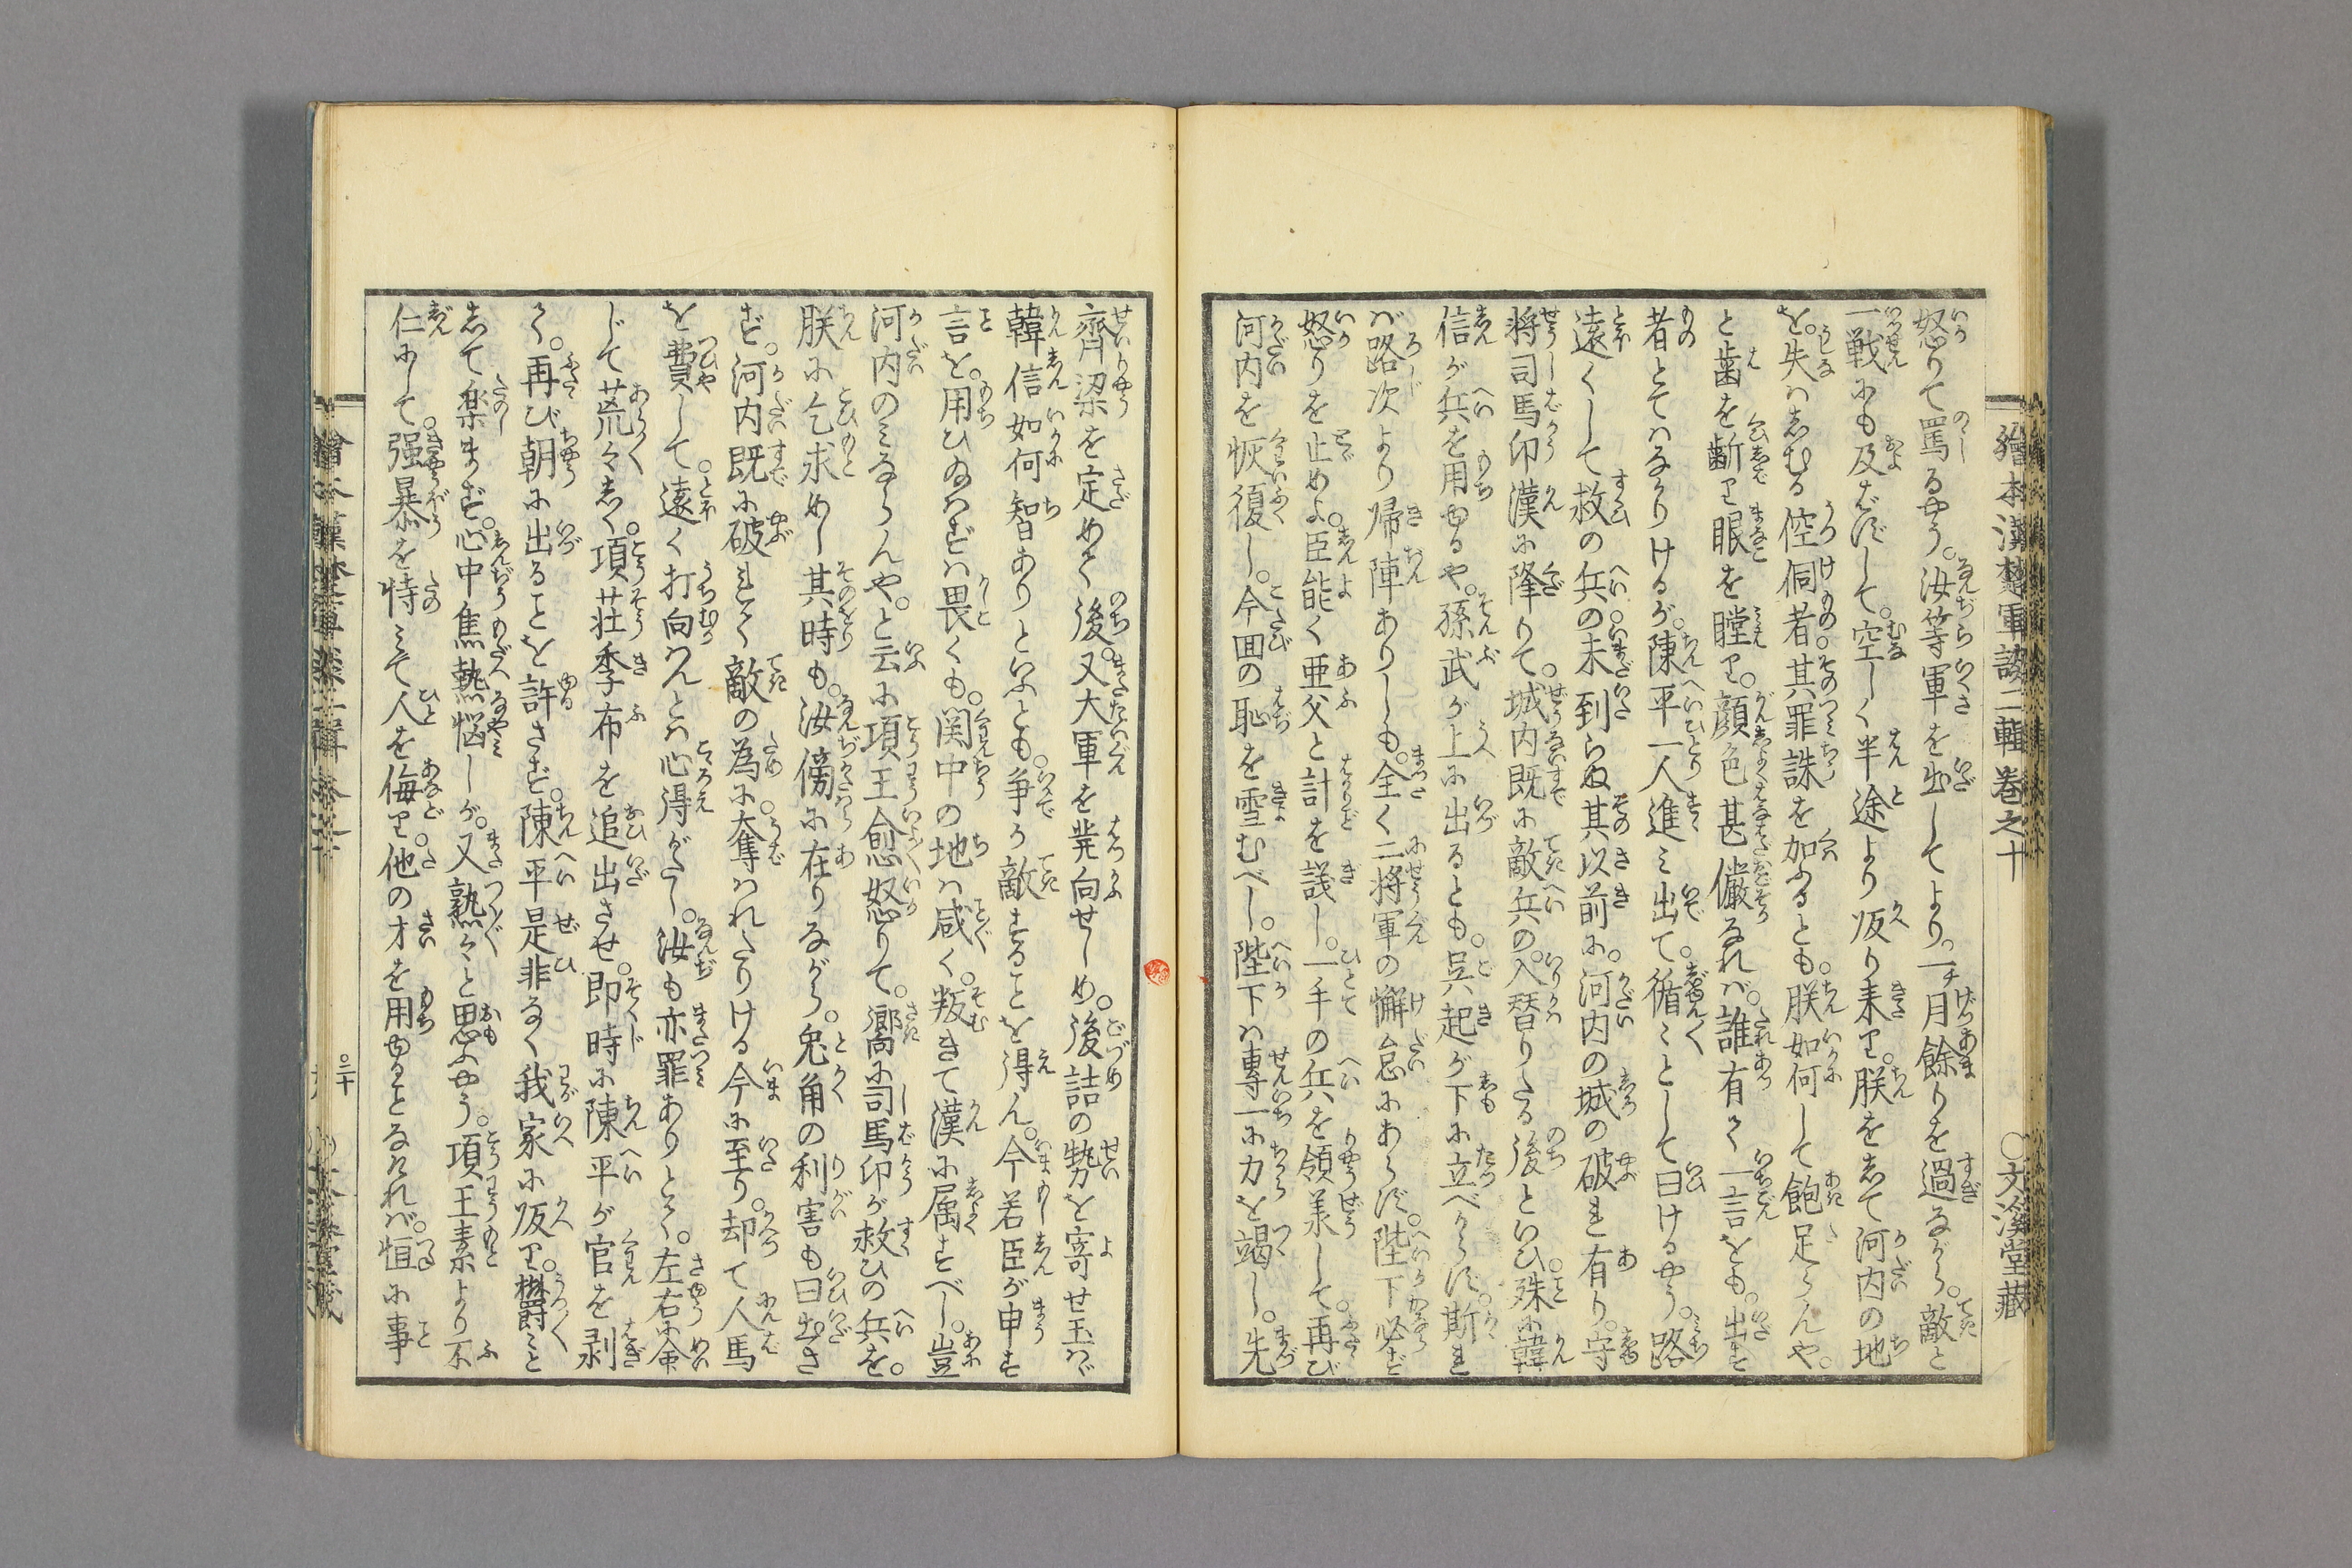 繪本漢楚軍談二輯 巻之十 ○文溪堂藏
怒りて罵るやう。汝等軍を出してより。一チ月餘りを過ながら。敵と
一戦にも及ばずして。空しく半途より皈り来り。朕をして河内の地
を。失はしむる倥侗者。其罪誅を加ふるとも。朕如何して飽足らんや。
と歯を齗り眼を瞠り。顔色甚儼なれば。誰有て一言をも。出す
者とてはなかりけるが。陳平一人進み出て。循々として曰けるやう。路
遠くして救の兵の。未到らぬ其以前に。河内の城の破れ有り。守
将司馬卬漢に降りて。城内既に敵兵の。入替りたる後といひ。殊に韓
信が兵を用ゆるや。孫武が上に出るとも。呉起が下に立べからず。斯れ
ば路次より帰陣ありしも。全く二将軍の懈怠にあらず。陛下必ず
怒りを止めよ。臣能く亜父と計を議し。一手の兵を領承して。再び
河内を恢復し。今囬の恥を雪むべし。陛下は専一に力を竭し。先
齊梁を定めて後。又大軍を発向せしめ。後詰の勢を寄せ玉はば
韓信如何智ありといふとも。争か敵することを得ん。今若臣が申す
言を。用ひ給はずは畏くも。関中の地は咸く。叛きて漢に属すべし。豈
河内のみならんや。と云に項王愈怒りて。嚮に司馬卬が救ひの兵を。
朕に乞求めし其時も。汝傍に在りながら。兎角の利害も曰出さ
ず。河内既に破れて敵の為に。奪はれたりける今に至り。却て人馬
を費して。遠く打向はんとは心得がたし。汝も亦罪ありとて。左右に命
じて荒々しく。項荘季布を追出させ。即時に陳平が官を剥
て。再び朝に出ることを許さず。陳平是非なく我家に皈り。欝々と
して楽まず。心中焦熱悩しが。又熟々と思ふやう。項王素より不
仁にして。强暴を恃みて人を侮り。他の才を用ゆるとなければ。恒に事
○三十